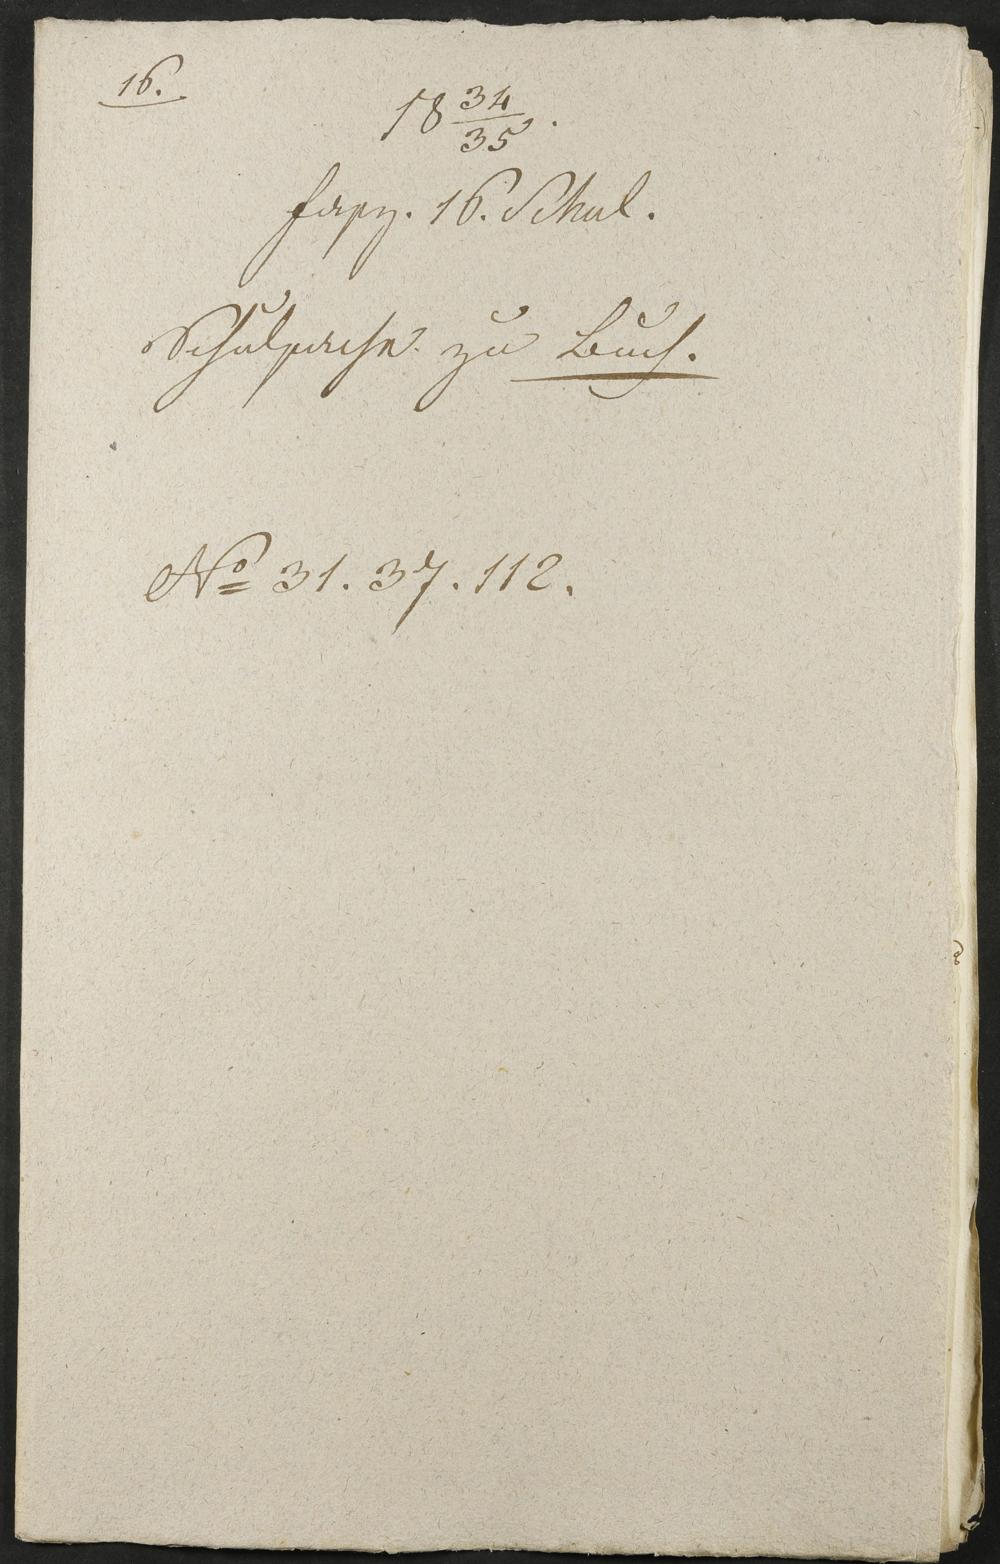 16.
18 34/35.
fasz. 16. Schul.
Schulsache zu Buch.
No 31. 37. 112.